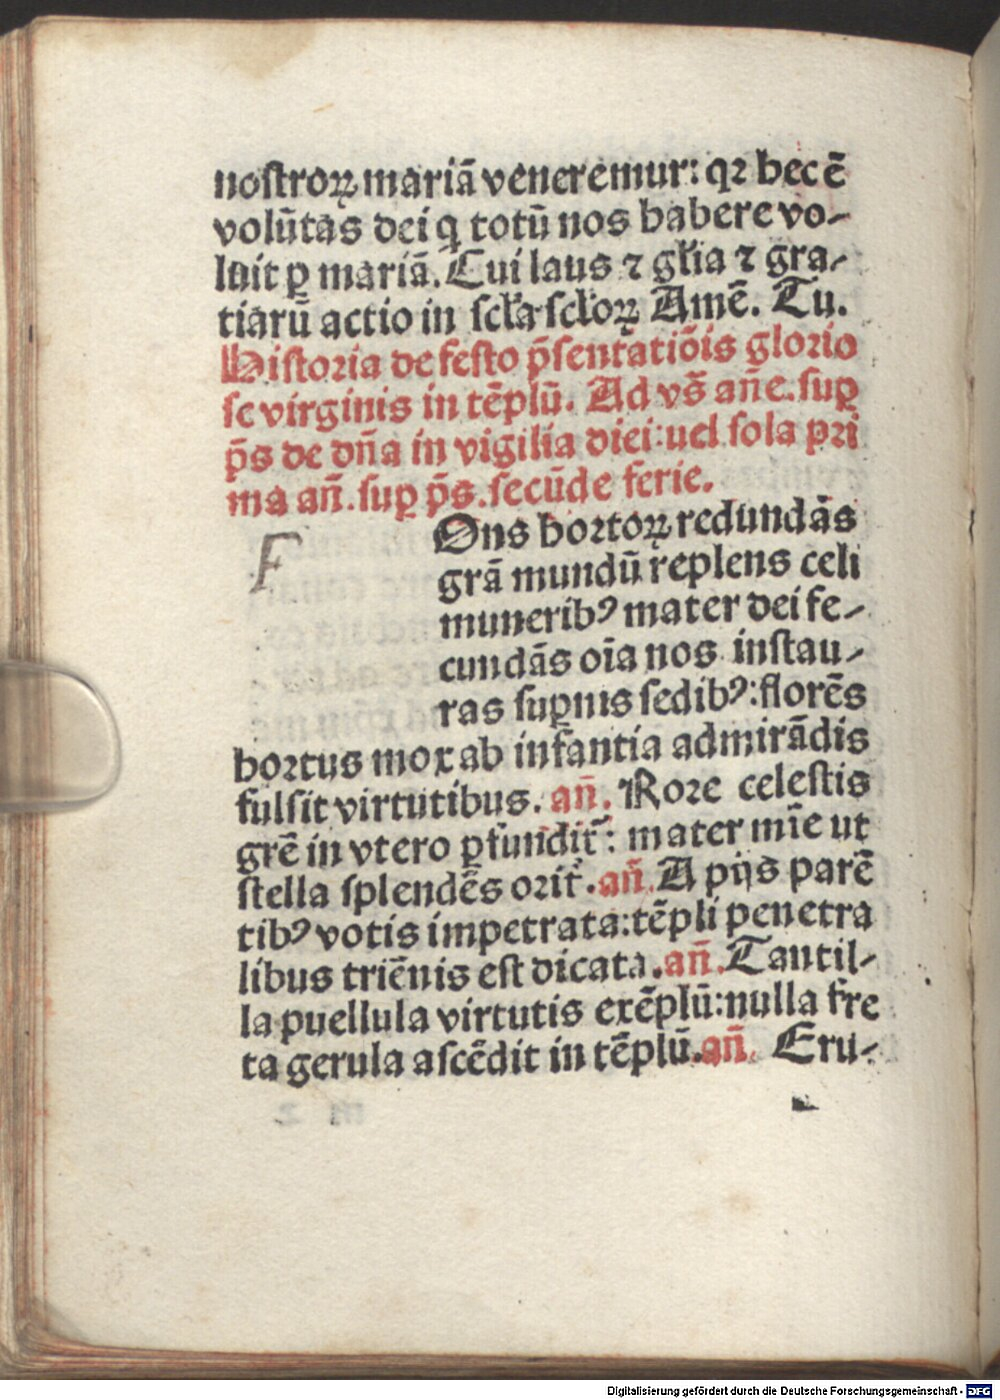 nostroꝝ mariā veneremur: qꝛ hec ē
volūtas dei q totū nos habere vo-
luit ꝑ mariā. Cui laus ⁊ gl̄ia ⁊ gra-
tiarū actio in scl̄a scl̄oꝝ Amē. Tu.
Historia de festo p̄sentatiōis glorio
se virginis in tēplū. Ad vs̄ an̄e. suꝑ
p̄s de dn̄a in vigilia diei: uel sola pri
ma an̄. suꝑ p̄s. secūde ferie.
F Ons hortoꝝ redundās
grā mundū replens celi
muneribꝰ mater dei fe-
cundās oīa nos instau-
ras suꝑnis sedibꝰ: florēs
hortus mox ab infantia admirādis
fulsit virtutibus. an̄. Rore celestis
grē in vtero ꝑfundit̄: mater mīe ut
stella splendēs orit̄. an̄. A pijs parē
tibꝰ votis impetrata: tēpli penetra
libus triēnis est dicata. an̄. Tantil-
la puellula virtutis exēplū: nulla fre
ta gerula ascēdit in tēplū. an̄. Eru-
Digitalisierung gefördert durch die Deutsche Forschungsgemeinschaft - DFG